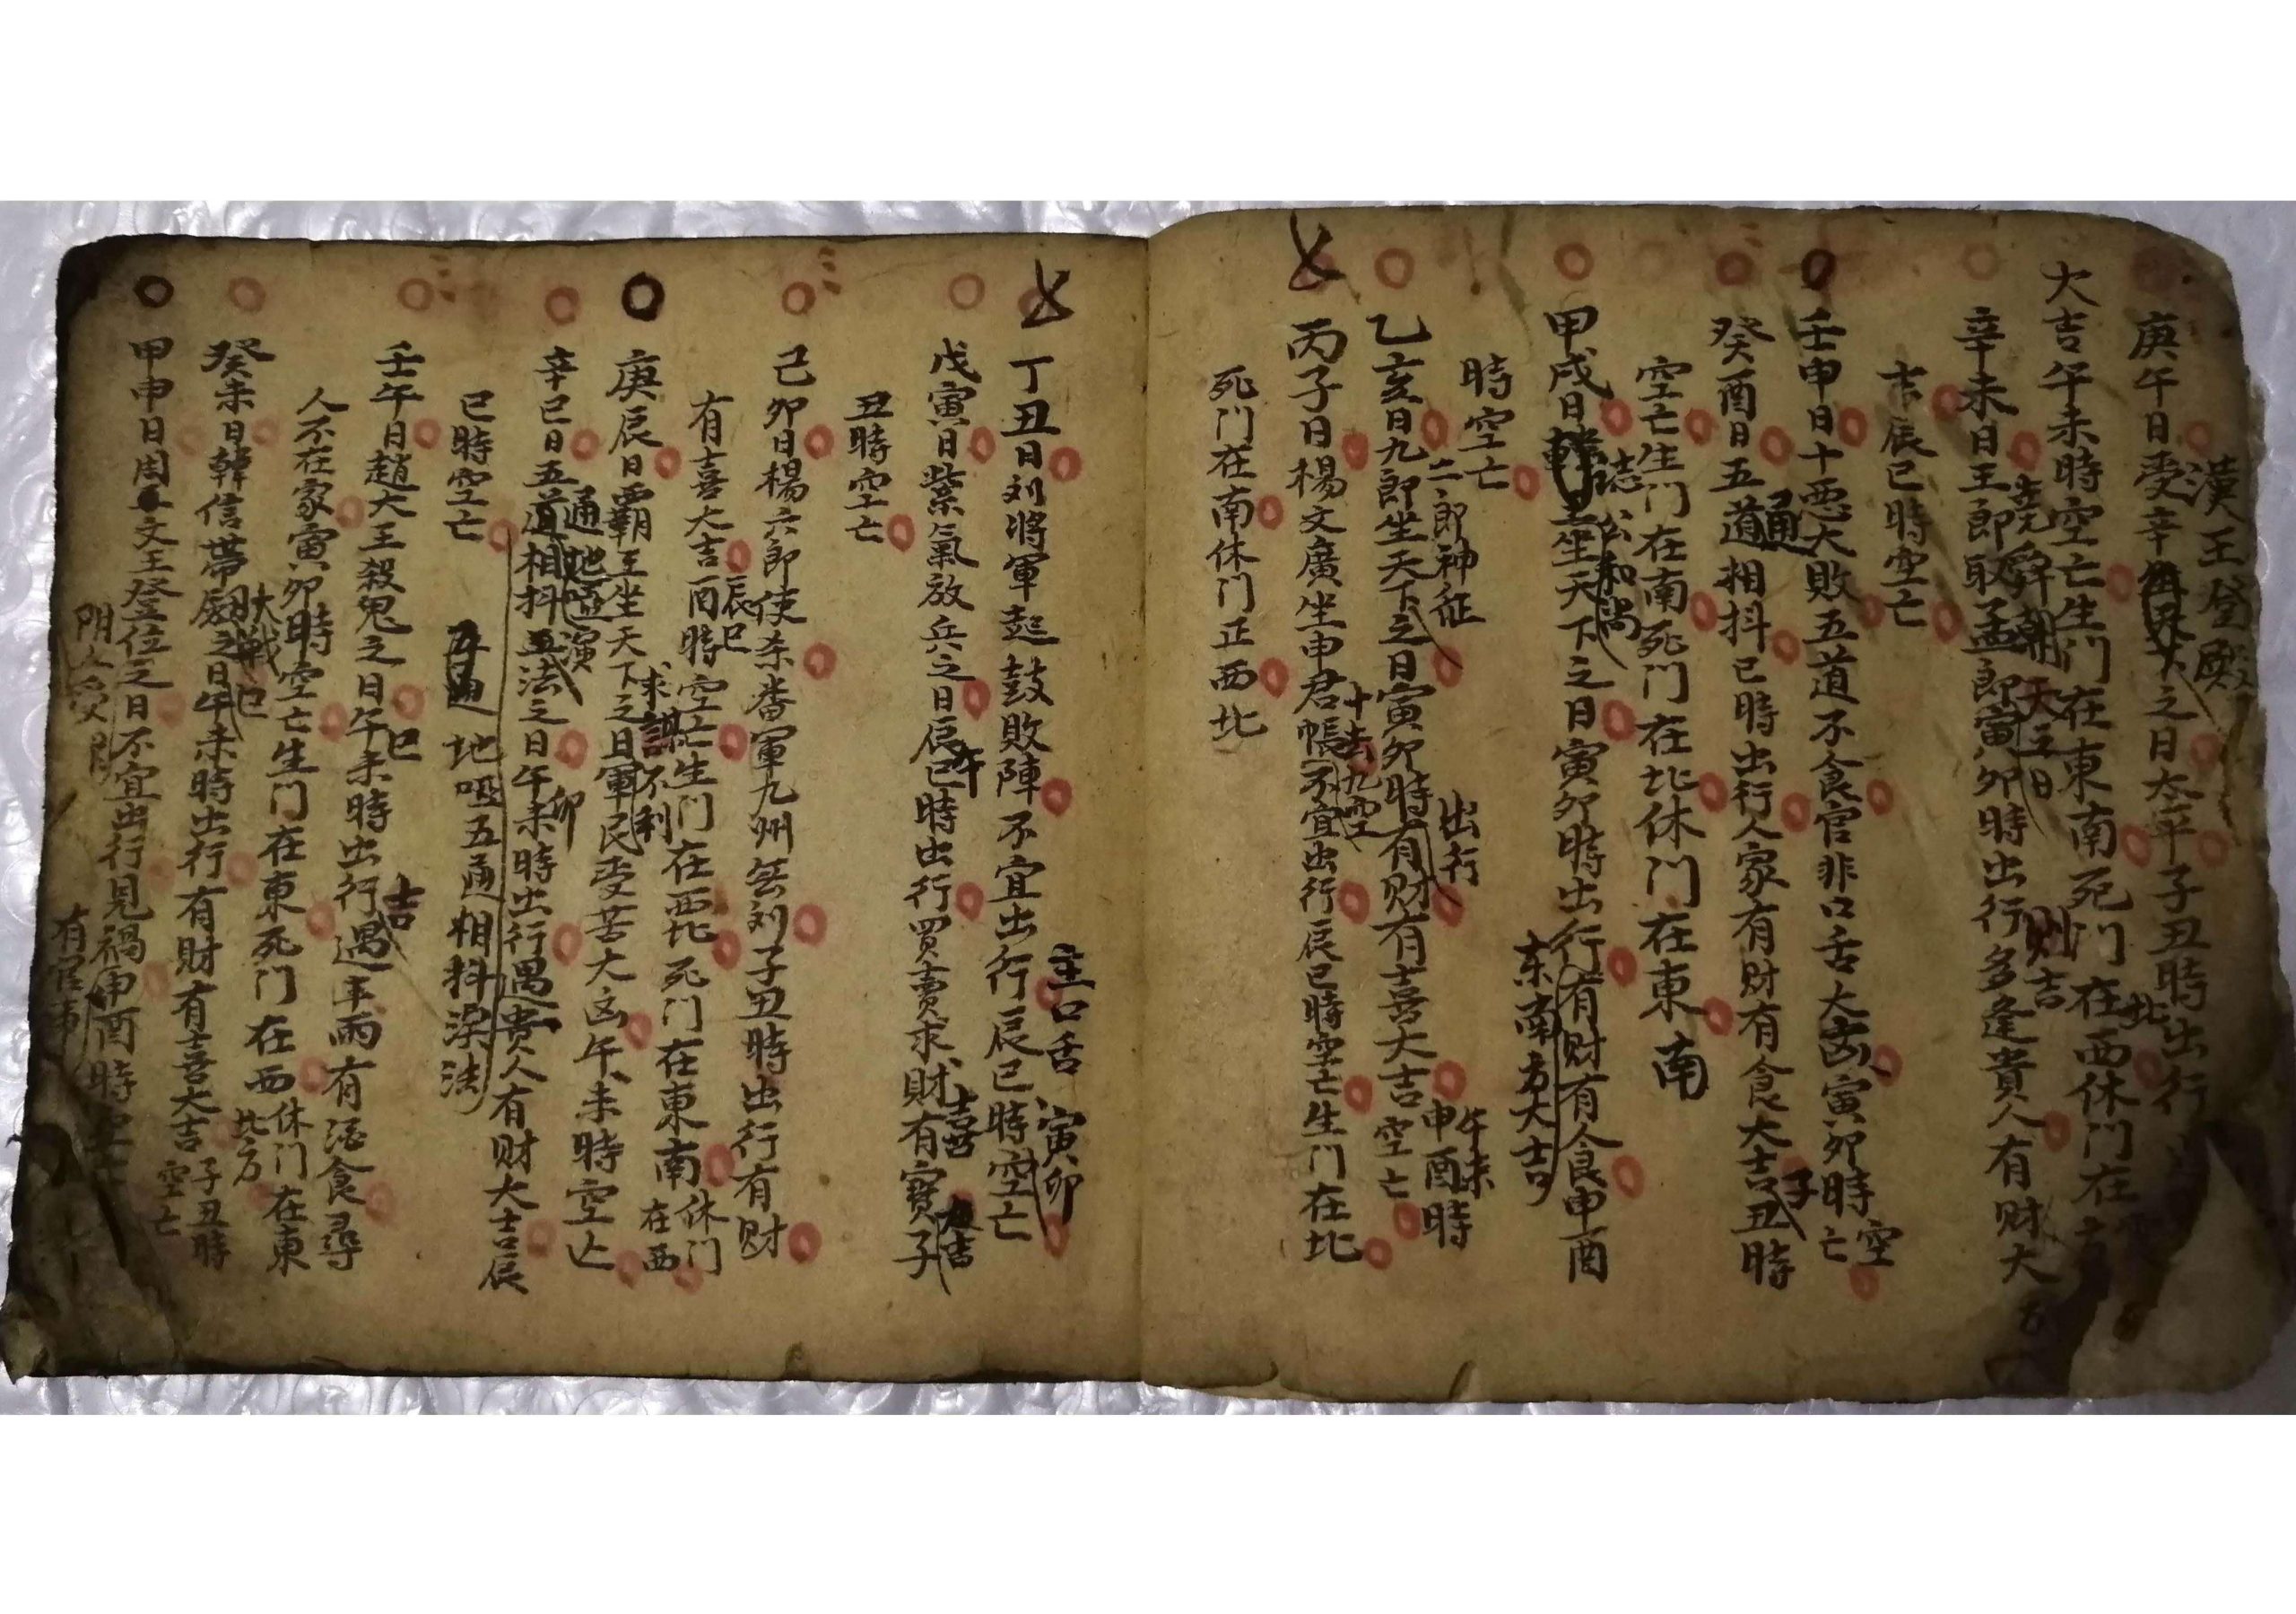 漢王登殿
庚午日受辛之日太平子丑時出行
北
大吉午未時空亡生门在東南死门在西休门在
堯舜朝天之日
财吉
辛未日王郎取孟郎寅卯時出行多逢貴人有财大
吉辰巳時空亡
壬申日十惡大敗五道不食官非口舌大凶寅卯時空亡
通
子
癸酉日五道相抖巳時出行人家有财有食大吉丑時
空亡生门在南死门在北休门在東南
誌公和尚
甲戌日韓王坐天下之日寅卯時出行有财有食申酉
东南方大吉
時空亡
二郎神征
出行
午未
乙亥日九郎坐天下之日寅卯時有财有喜大吉空亡申酉時
十去九空
丙子日楊文廣坐申君帳不宜出行辰巳時空亡生门在北
死门在南休门正西北
主口舌
寅卯
丁丑日刘將軍起鼓敗陣不宜出行辰巳時空亡
午
喜
大吉
戊寅日紫氣放兵之日辰巳時出行買賣求財有寶子
丑時空亡
己卯日楊六郎使杀畨軍九州無刘子丑時出行有财
辰巳
有喜大吉酉時空亡生门在西北死门在東南休门在西
求謀不利
庚辰日霸王坐天下之日軍民受苦大凶午未時空亡
通地啞演
卯
辛巳日五道相抖五法之日午未時出行遇貴人有财大吉辰
巳時空亡
五通地啞五通相抖梁法
巳
吉
壬午日趙大王殺鬼之日午未時出行遇年雨有酒食尋
人不在家寅卯時空亡生门在東死门在西北方休门在東
大戰
巳
癸未日韓信帶殿之日午未時出行有财有喜大吉子丑時空亡
甲申日周文王登位之日不宜出行見禍申酉時空亡
有官事